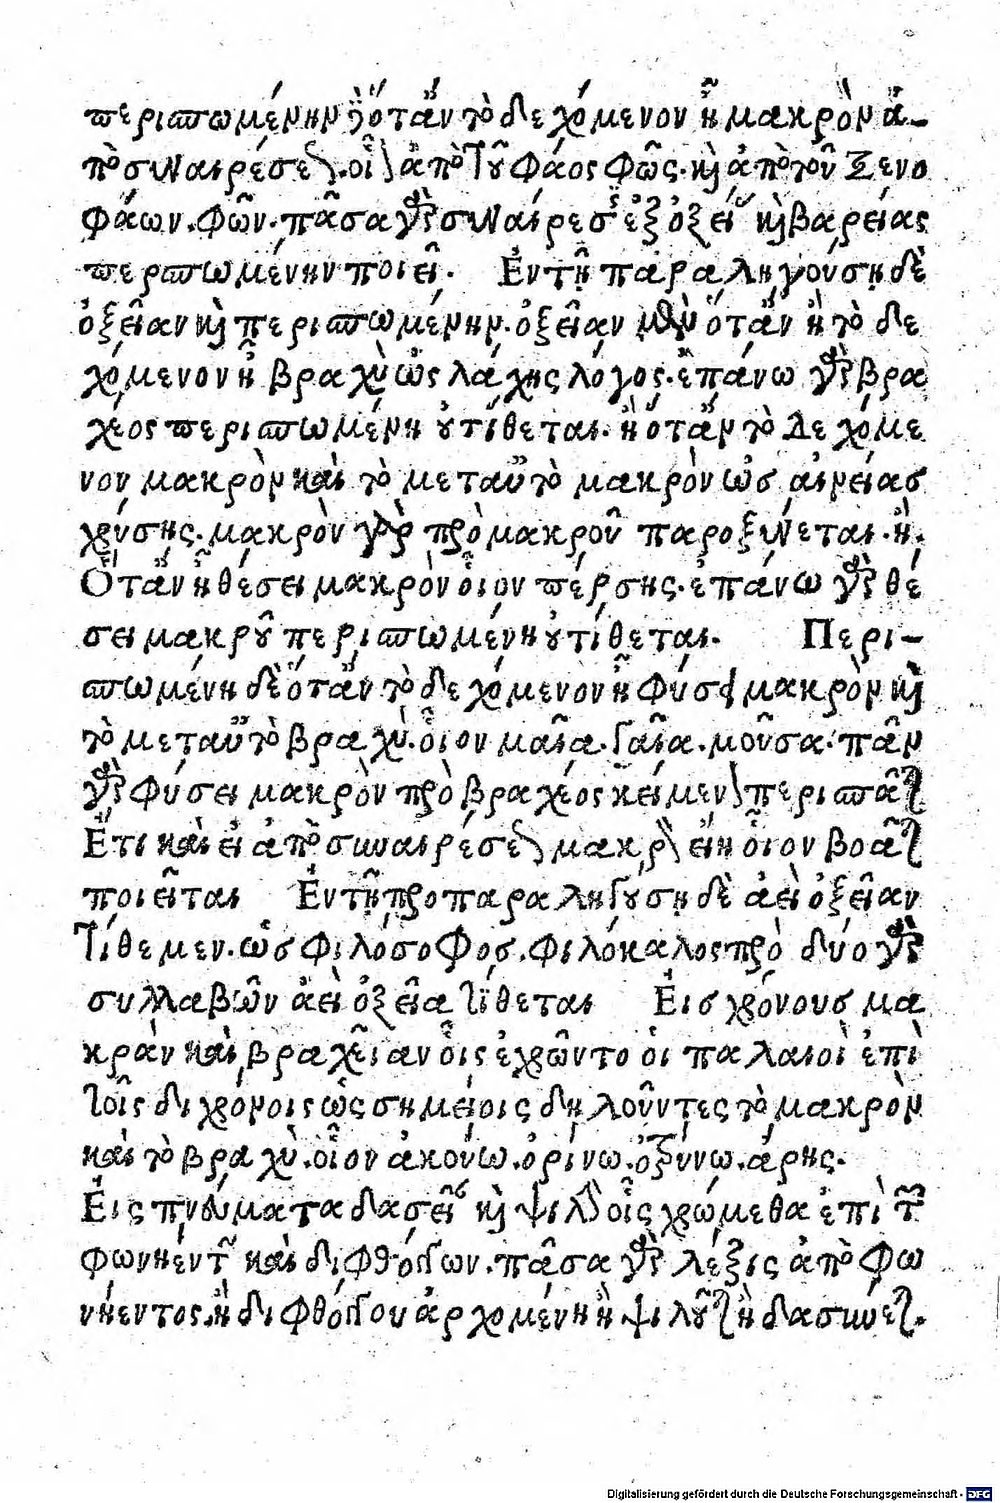 περισπωμένην δὲ ὅταν τὸ δεχόμενον ἦ μακρὸν ἀ-
πὸ συναιρέσεως. οἷον ἀπὸ τοῦ φάος φῶς. καὶ ἀπὸ τοῦ Ξενο
φάων. φῶν. πᾶσα γὰρ συναίρεσις ἐξ ὀξείας καὶ βαρείας
περισπωμένην ποιεῖ. Ἐν τῇ παραληγούσῃ δὲ
ὀξεῖαν καὶ περισπωμένην. ὀξεῖαν μὲν ὅταν ἢ τὸ δε
χόμενον ἦ βραχὺ ὡς λάχης λόγος. ἐπάνω γὰρ βρα
χέος περισπωμένη οὐ τίθεται. ἢ ὅταν τὸ δεχόμε
νον μακρὸν καὶ τὸ μετ αὐτὸ μακρὸν ὡς αἰνείας
χρύσης. μακρὸν γὰρ πρὸ μακροῦ παροξύνεται. ἢ.
Ὅταν ἦ θέσει μακρὸν οἷον πέρσης. ἐπάνω γὰρ θέ
σει μακροῦ περισπωμένη οὐ τίθεται. Περι-
σπωμένη δὲ ὅταν τὸ δεχόμενον ἦ φύσει μακρὸν καὶ
τὸ μετ αὐτὸ βραχὺ. οἷον μαῖα. γαῖα. μοῦσα. πᾶν
γὰρ φύσει μακρὸν πρὸ βραχέος κείμενον περισπᾶται
Ἔτι καὶ εἰ ἀπὸ συναιρέσεως μακρὸν εἴη οἷον βοᾶται
ποιεῖται Ἐν τῇ προπαραληγούσῃ δὲ ἀεὶ ὀξεῖαν
τίθεμεν. ὡς φιλόσοφος. φιλόκαλος πρὸ δύο γὰρ
συλλαβῶν ἀεὶ ὀξεῖα τίθεται Εἰς χρόνους μα
κρὰν καὶ βραχεῖαν οἷς ἐχρῶντο οἱ παλαιοὶ ἐπὶ
τοῖς διχρόνοις ὡς σημείοις δηλοῦντες τὸ μακρὸν
καὶ τὸ βραχὺ. οἷον ἀκούω. ὀρίνω. ὀξύνω. άρης.
Εἰς πνεύματα δασεῖαν καὶ ψιλὴν οἷς χρώμεθα ἐπὶ τῶν
φωνηέντων καὶ διφθόγγων. πᾶσα γὰρ λέξις ἀπὸ φω
νήεντος ἢ διφθόγγου ἀρχομένη ἢ ψιλοῦται ἢ δασύνεται.
Digitalisierung gefördert durch die Deutsche Forschungsgemeinschaft - DFG